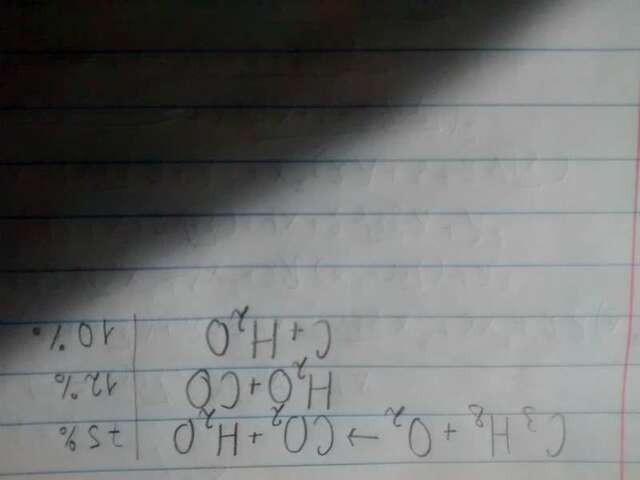 C₃H₈ + O₂ → CO₂ + H₂O | 75%
H₂O + CO | 12%
C + H₂O | 10%